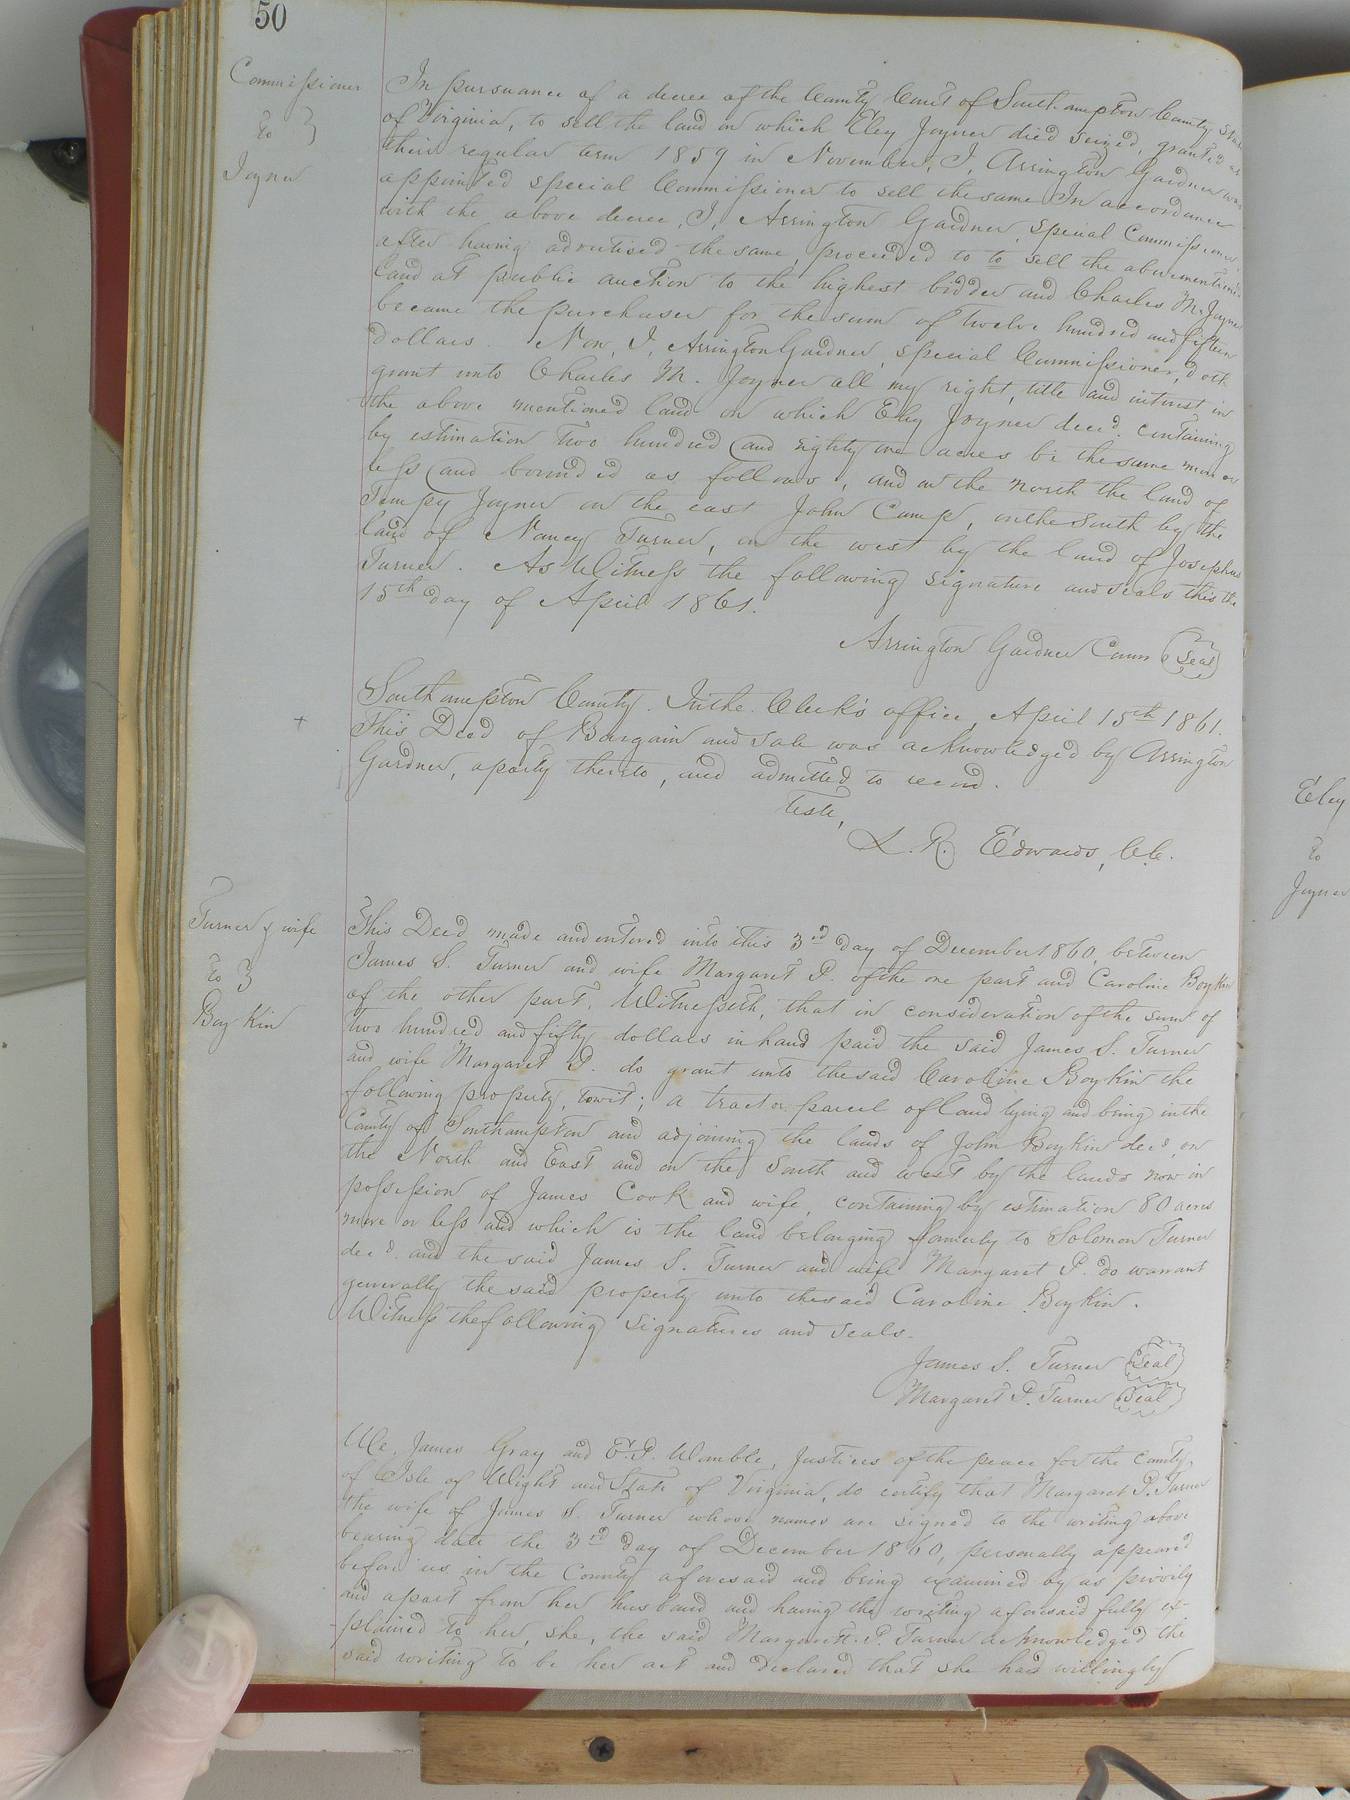 50
Commissioner
to }
Joyner
In pursuance of a decree of the County Court of Southampton County State
of Virginia, to sell the land on which Eley Joyner died seized, granted at
their regular term 1859 in November, I, Arrington Gardner was
appointed special Commissioner to sell the same In accordance
with the above decree, I, Arrington Gardner, special Commissioner
after having advertised the same, proceeded to to sell the abovementioned
land at public auction to the highest bidder and Charles M. Joyner
became the purchaser for the sum of twelve hundred and fifteen
dollars. Now, I, Arrington Gardner, special Commissioner, doth
grant unto Charles M. Joyner all my right, title and interest in
the above mentioned land on which Eley Joyner decd. containing
by estimation two hundred and eighty one acres be the same more or
less and bounded as follows, and on the north the land of
Tempy Joyner on the east John Camp, on the South by the
land of Nancy Turner, on the west by the land of Josephus
Turner. As Witness the following signature and seals this the
15th day of April 1861.
Arrington Gardner Comm (Seal)
+
Southampton County. In the Clerk's office, April 15th 1861.
This Deed of Bargain and Sale was acknowledged by Arrington
Gardner, a party thereto, and admitted to record.
Teste,
L. R. Edwards, C.C.
Turner & wife
to }
Boykin
This Deed made and entered into this 3rd day of December 1860, between
James S. Turner and wife Margaret P. of the one part and Caroline Boykin
of the other part, Witnesseth, that in consideration of the sum of
two hundred and fifty dollars in hand paid the said James S. Turner
and wife Margaret P. do grant unto the said Caroline Boykin the
following property, towit; a tract or parcel of land lying and being in the
County of Southampton and adjoining the lands of John Boykin decd, on
the North and East and on the South and west by the lands now in
possession of James Cook and wife, containing by estimation 80 acres
more or less and which is the land belonging formerly to Solomon Turner
decd. and the said James S. Turner and wife Margaret P. do warrant
generally the said property unto the said Caroline Boykin.
Witness the following signatures and seals.
James S. Turner (Seal)
Margaret P. Turner (Seal)
We, James Gray and Womble, Justices of the peace for the County,
of Isle of Wight and State of Virginia, do certify that Margaret P. Turner
the wife of James S. Turner whose names are signed to the writing above
bearing date the 3rd day of December 1860, personally appeared
before us in the County aforesaid and being examined by us privily
and apart from her husband and having the writing aforesaid fully ex-
plained to her, she, the said Margarett. P. Turner acknowledged the
said writing to be her act and declared that she had willingly
Eley
to
Joyner